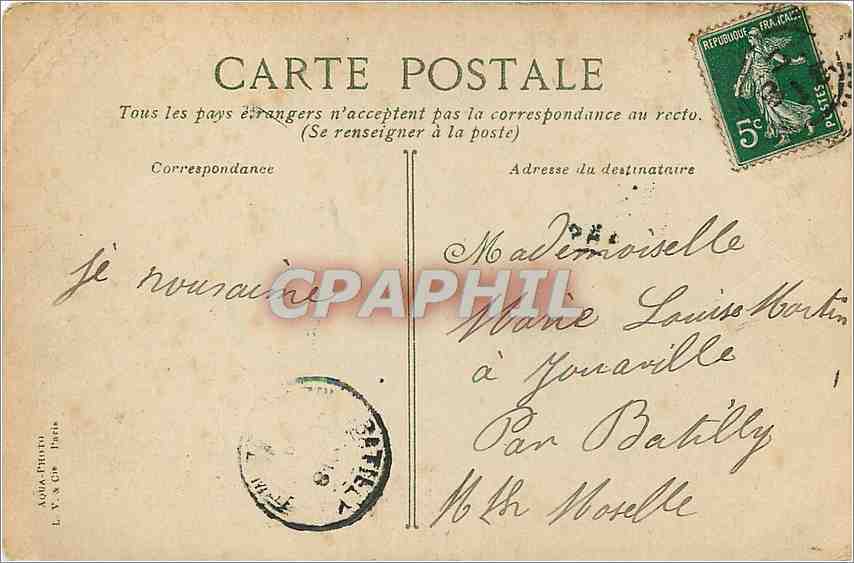 CARTE POSTALE
Tous les pays étrangers n'acceptent pas la correspondance au recto.
(Se renseigner à la poste)
Correspondance
Adresse du destinataire
REPUBLIQUE FRANÇAISE
POSTES
5c
je nousaine
Mademoiselle
Marie Louise Martin
à Jouaville
Par Batilly
Mthe Moselle
BATILLY
AQUA-PHOTO
L. V. & Cie Paris
CPAPHIL